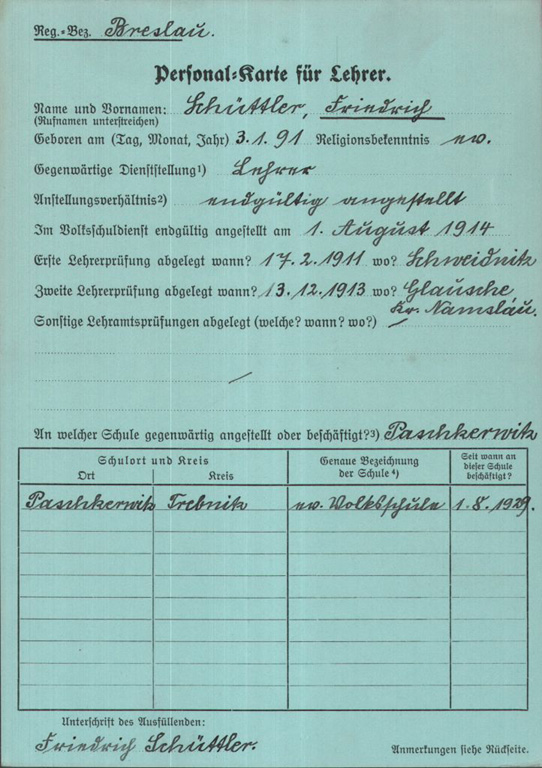 Reg.-Bez. Breslau.
Personal-Karte für Lehrer.
Name und Vornamen: Schüttler, Friedrich
(Rufnamen unterstreichen)
Geboren am (Tag, Monat, Jahr) 3. 1. 91 Religionsbekenntnis ev.
Gegenwärtige Dienststellung¹) Lehrer
Anstellungsverhältnis²) endgültig angestellt
Im Volksschuldienst endgültig angestellt am 1. August 1914
Erste Lehrerprüfung abgelegt wann? 17. 2. 1911 wo? Schweidnitz
Zweite Lehrerprüfung abgelegt wann? 13. 12. 1913 wo? Glausche
Kr. Namslau.
Sonstige Lehramtsprüfungen abgelegt (welche? wann? wo?) /
/
An welcher Schule gegenwärtig angestellt oder beschäftigt?³) Paschkerwitz
Schulort und Kreis
Ort Kreis
Genaue Bezeichnung
der Schule⁴)
Seit wann an
dieser Schule
beschäftigt?
Paschkerwitz Trebnitz ev. Volksschule 1. 8. 1929.
Unterschrift des Ausfüllenden:
Friedrich Schüttler.
Anmerkungen siehe Rückseite.